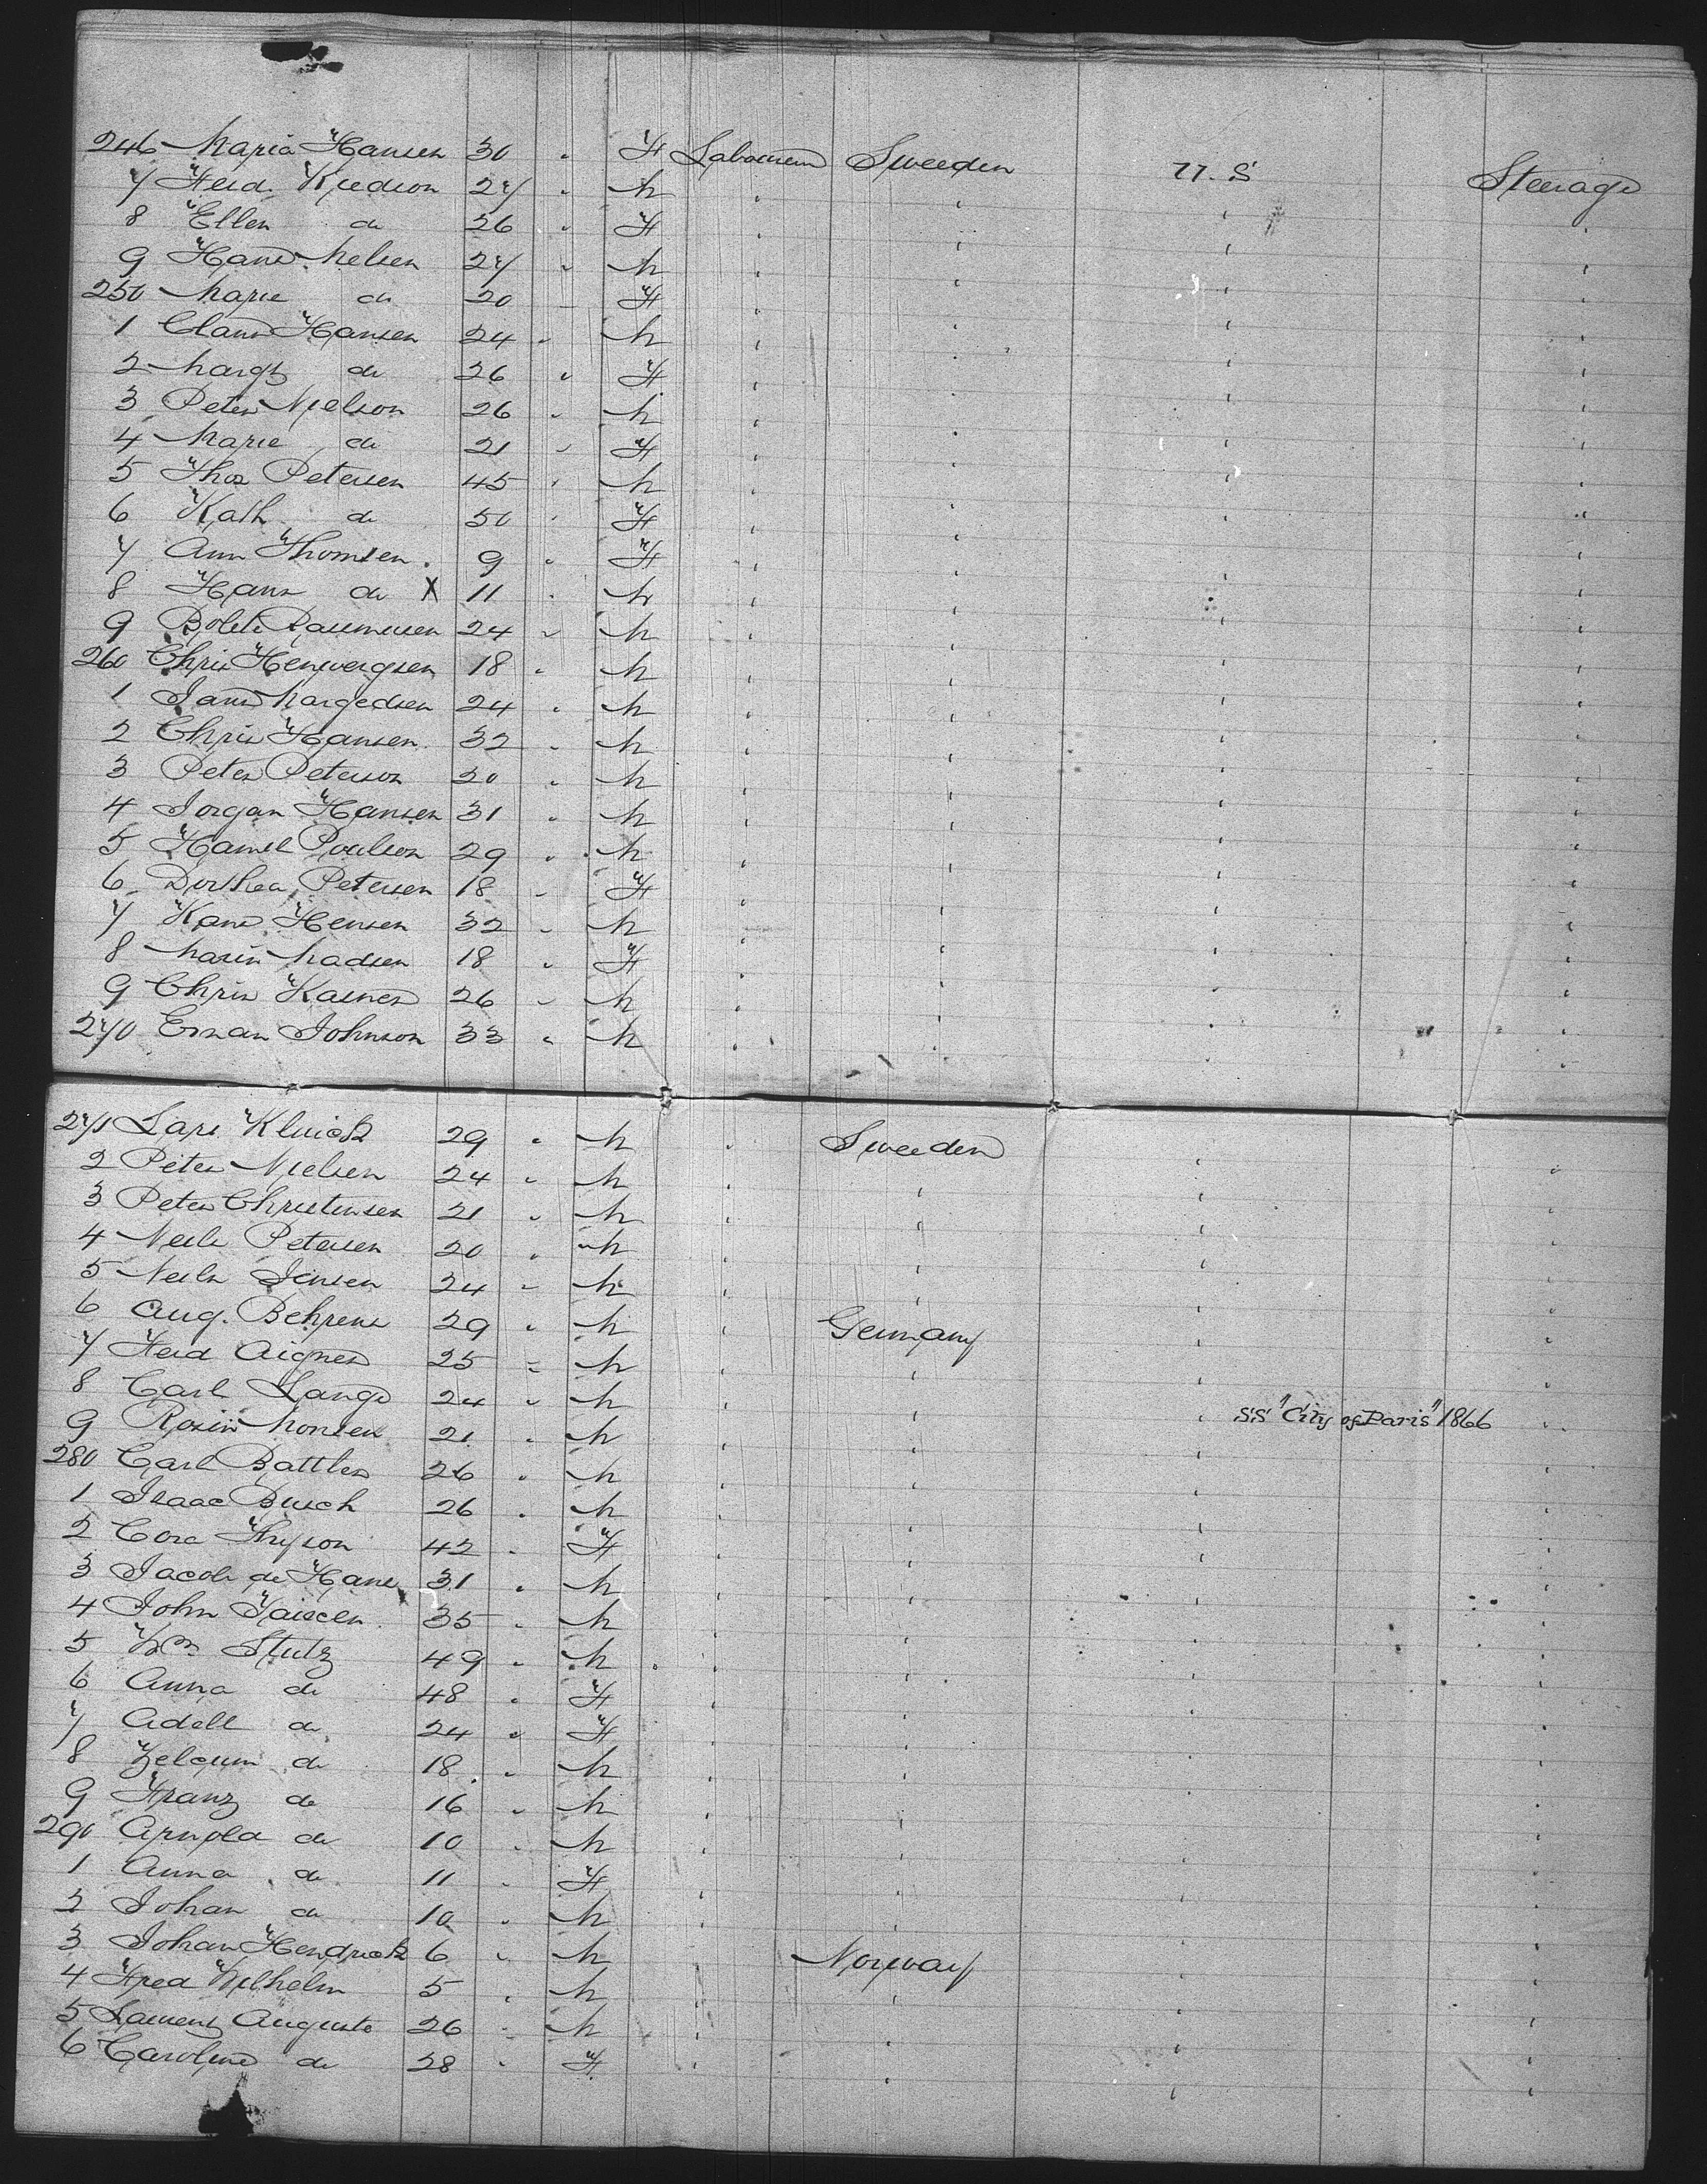 246 Maria Hansen 30 " F Labourers Sweeden U.S Steerage
7 Ferd. Kiedson 27 " M
8 Ellen do 26 " F
9 Hans Nelsen 27 " M
250 Marie do 20 " F
1 Claus Hansen 24 " M
2 Margt do 26 " F
3 Peter Nielson 26 " M
4 Marie do 21 " F
5 Thos Petersen 45 " M
6 Kath do 50 " F
7 Ann Thomsen 9 " F
8 Hans do X 11 " M
9 Bolet Rasmussen 24 " M
260 Chris 18 " M
1 Jans 24 " M
2 Chris Hansen 32 " M
3 Peter Peterson 20 " M
4 Jorgan Hansen 31 " M
5 Poulson 29 " M
6 Dorthea Petersen 18 " F
7 Kans Hensen 32 " M
8 Marin Madsen 18 " F
9 Chris 26 " M
270 Ernan Johnson 33 " M
271 Lars Kluick 29 " M " Sweeden
2 Peter Nielsen 24 " M
3 Peter Christensen 21 " M
4 Neils Petersen 20 " M
5 Neils Jensen 24 " M
6 Aug. Behrens 29 " M " Germany
7 Ferd Aigner 25 " M
8 Carl Lange 24 " M
S.S "City of Paris" 1866
9 Rosin Monsen 21 " M
280 Carl Battler 26 " M
1 Isaac Busch 26 " M
2 Cora Thyson 42 " F
3 Jacob de Hane 31 " M
4 John 35 " M
5 Wm Stutz 49 " M
6 Anna do 48 " F
7 Adell do 24 " F
8 do 18 " M
9 Franz do 16 " M
290 Arnold do 10 " M
1 Anna do 11 " F
2 Johan do 10 " M
3 Johan Hendrick 6 " M " Norway
4 Fred Wilhelm 5 " M
5 Laurenz Auguste 26 " M
6 Caroline do 28 " F